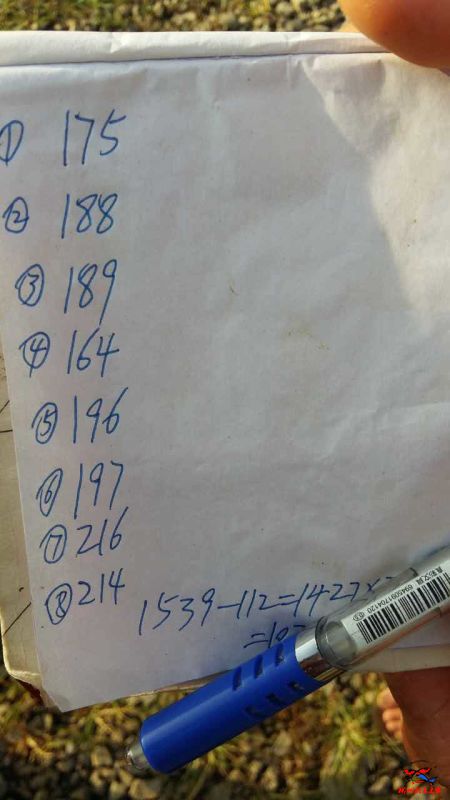 ① 175
② 188
③ 189
④ 164
⑤ 196
⑥ 197
⑦ 216
⑧ 214
1539-112=1427×
=10
6945091704120